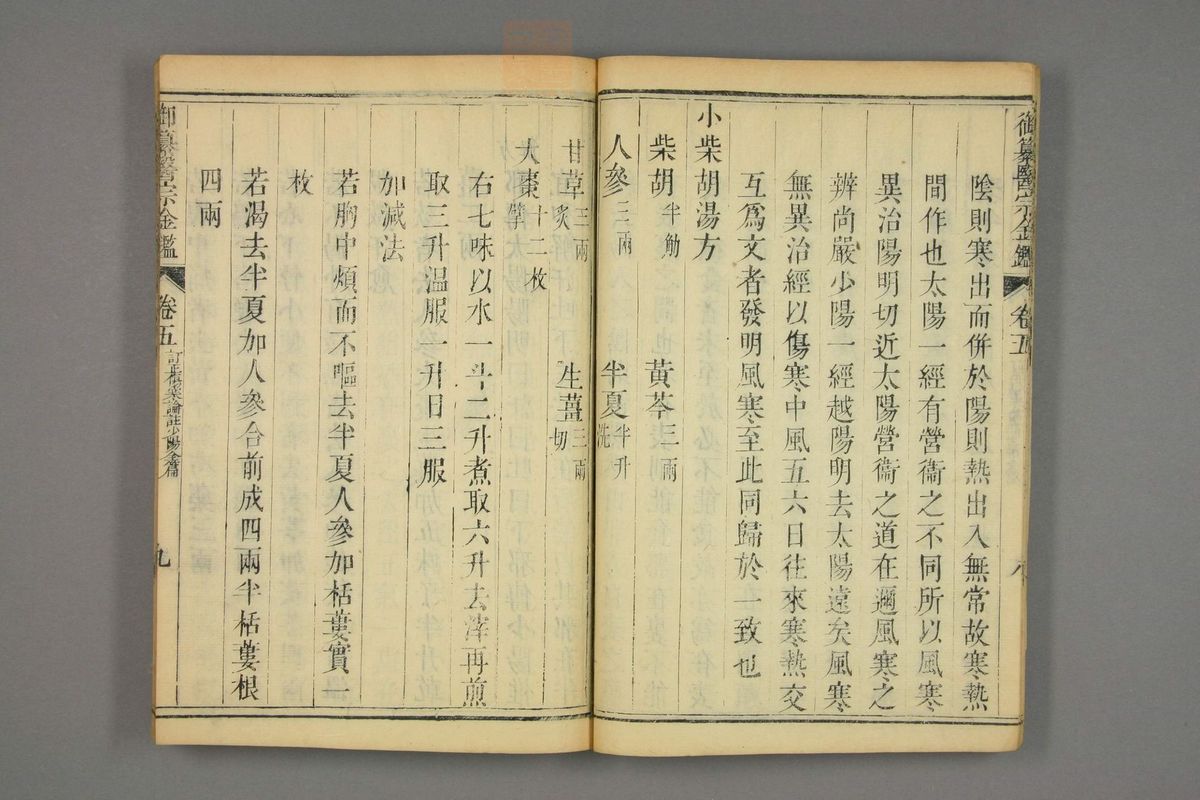 御纂醫宗金鑑 卷五 八
陰則寒出而併於陽則熱出入無常故寒熱
間作也太陽一經有營衞之不同所以風寒
異治陽明切近太陽營衞之道在邇風寒之
辨尚嚴少陽一經越陽明去太陽遠矣風寒
無異治經以傷寒中風五六日往來寒熱交
互爲文者發明風寒至此同歸於一致也
小柴胡湯方
柴胡半觔 黃芩三兩
人參三兩 半夏半升洗
甘草三兩炙 生薑三兩切
大棗十二枚擘
右七味以水一斗二升煮取六升去滓再煎
取三升温服一升日三服
加減法
若胸中煩而不嘔去半夏人參加栝蔞實一
枚
若渴去半夏加人參合前成四兩半栝蔞根
四兩
御纂醫宗金鑑 卷五 訂正傷寒論註少陽全篇 九